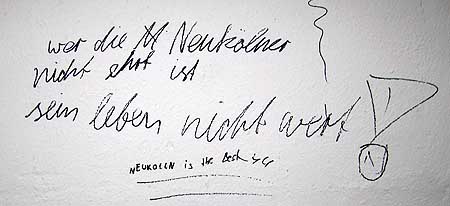 wer die M Neukölner
nicht ehrt ist
sein leben nicht wert!
NEUKOLLN is the Best